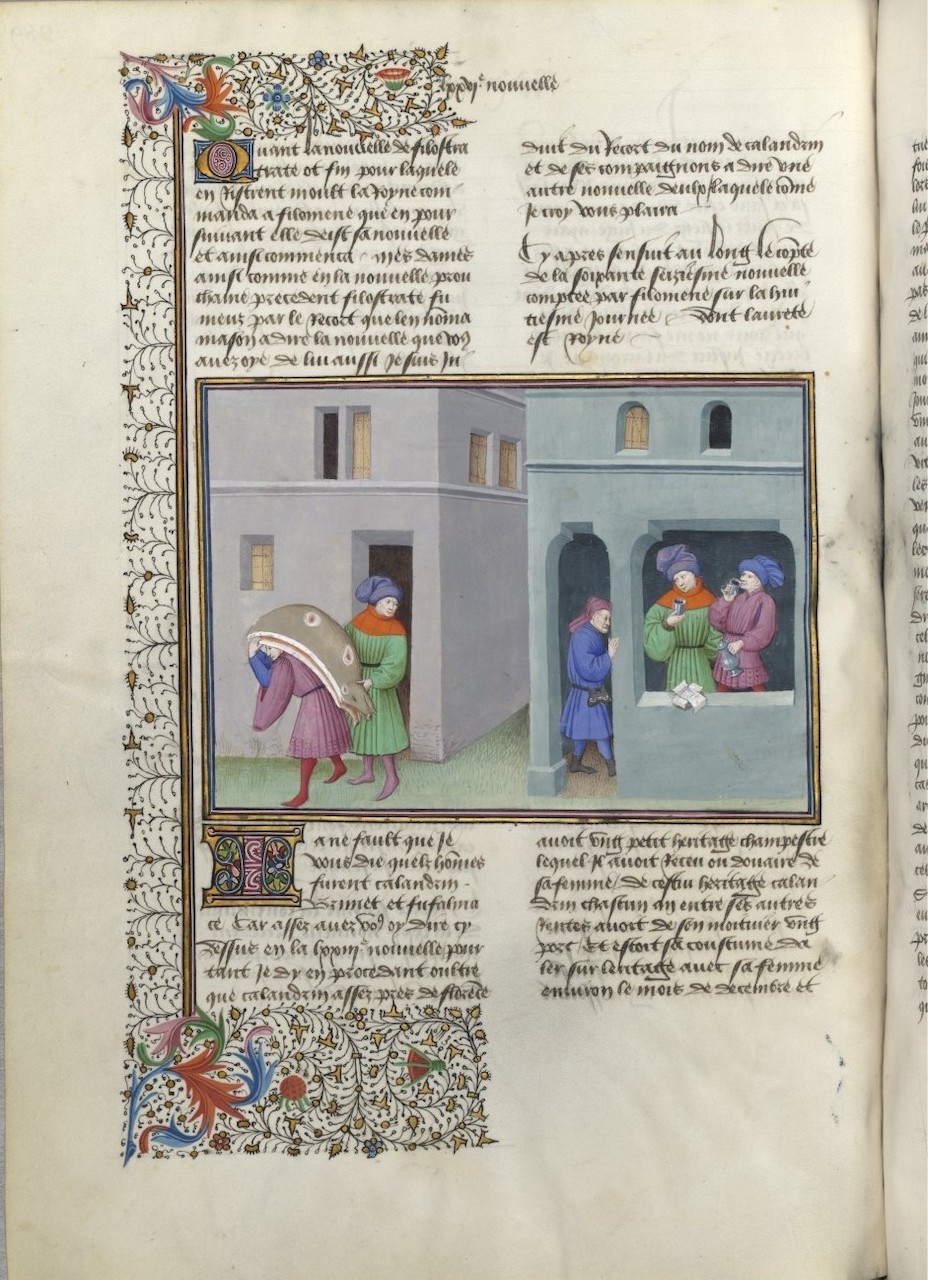 lxxvi.e nouvelle
Quant la nouvelle de filostra
trate ot fin pour laquele
en Ristrent moult la Royne com
manda a filomene que en pour
suivant elle deist sa nouvelle
et ainsi commenca mes dames
ainsi comme en la nouvelle prou
chaine precedent filostrate fu
meuz par le Recort que len noma
mason a dire la nouvelle que vous
avez oye de lui aussi Je suis in
duit du Recort du nom de calandrin
et de ses compaignons a dire une
autre nouvelle deulx laquele come
Je croy vous plaira
Cy apres sensuit au long le compte
de la soixante seiziesme nouvelle
comptee par filomene sur la hui
tiesme Journee dont laurete
est Royne
Ia ne fault que Je
vous die quelz hommes
furent calandrin
brunet et
ce Car assez avez vous oy dire cy
dessus en la nouvelle pour
tant Je dy en procedant oultre
que calandrin assez pres de florence
avoit ung petit heritage champestre
lequel Il avoit Receu ou douaire de
sa femme de cestui heritage calan
drin chascun an entre ses autres
Rentes avoit de son moitoier ung
porc Et estoit sa coustume da
ler sur leritage avec sa femme
environ le mois de decembre et